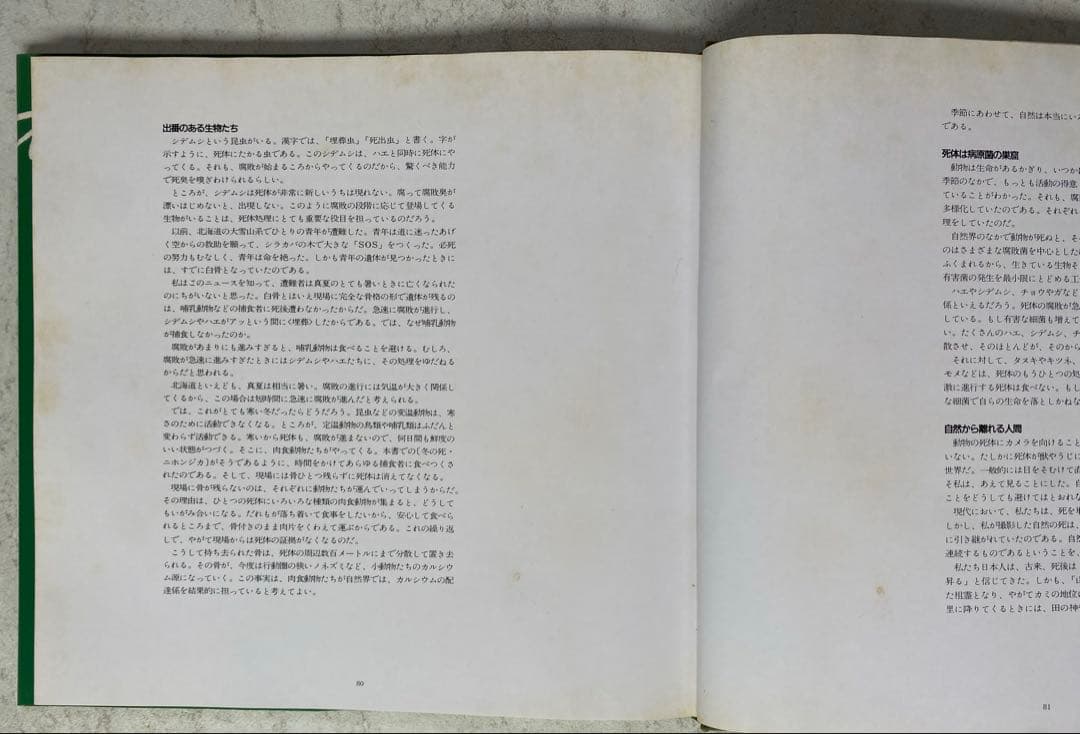 出番のある生物たち
シデムシという昆虫がいる。漢字では、「埋葬虫」「死出虫」と書く。字が
示すように、死体にたかる虫である。このシデムシは、ハエと同時に死体にや
ってくる。それも、腐敗が始まるころからやってくるのだから、驚くべき能力
で死臭を嗅ぎわけられるらしい。
ところが、シデムシは死体が非常に新しいうちは現れない。腐って腐敗臭が
漂いはじめないと、出現しない。このように腐敗の段階に応じて登場してくる
生物がいることは、死体処理にとても重要な役目を担っているのだろう。
以前、北海道の大雪山系でひとりの青年が遭難した。青年は道に迷ったあげ
く空からの救助を願って、シラカバの木で大きな「SOS」をつくった。必死
の努力もむなしく、青年は命を絶った。しかも青年の遺体が見つかったときに
は、すでに白骨となっていたのである。
私はこのニュースを知って、遭難者は真夏のとても暑いときに亡くなられた
のにちがいないと思った。白骨とはいえ現場に完全な骨格の形で遺体が残るの
は、哺乳動物などの捕食者に死後遭わなかったからだ。急速に腐敗が進行し、
シデムシやハエがアッという間に〈埋葬〉したからである。では、なぜ哺乳動物
が捕食しなかったのか。
腐敗があまりにも進みすぎると、哺乳動物は食べることを避ける。むしろ、
腐敗が急速に進みすぎたときにはシデムシやハエたちに、その処理をゆだねる
からだと思われる。
北海道といえども、真夏は相当に暑い。腐敗の進行には気温が大きく関係し
てくるから、この場合は短時間に急速に腐敗が進んだと考えられる。
では、これがとても寒い冬だったらどうだろう。昆虫などの変温動物は、寒
さのために活動できなくなる。ところが、定温動物の鳥類や哺乳類はふだんと
変わらず活動できる。寒いから死体も、腐敗が進まないので、何日間も鮮度の
いい状態がつづく。そこに、肉食動物たちがやってくる。本書での〈冬の死・
ニホンジカ〉がそうであるように、時間をかけてあらゆる捕食者に食べつくさ
れたのである。そして、現場には骨ひとつ残らずに死体は消えてなくなる。
現場に骨が残らないのは、それぞれに動物たちが運んでいってしまうからだ。
その理由は、ひとつの死体にいろいろな種類の肉食動物が集まると、どうして
もいがみ合いになる。だれもが落ち着いて食事をしたいから、安心して食べら
れるところまで、骨付きのまま肉片をくわえて運ぶからである。これの繰り返
しで、やがて現場からは死体の証拠がなくなるのだ。
こうして持ち去られた骨は、死体の周辺数百メートルにまで分散して置き去
られる。その骨が、今度は行動圏の狭いノネズミなど、小動物たちのカルシウ
ム源になっていく。この事実は、肉食動物たちが自然界では、カルシウムの配
達係を結果的に担っていると考えてよい。
80
季節にあわせて、自然は本当にいろ
である。
死体は病原菌の巣窟
動物は生命があるかぎり、いつか
季節のなかで、もっとも活動の得意
ていることがわかった。それも、腐
多様化していたのである。それぞれ
理をしていたのだ。
自然界のなかで動物が死ぬと、そ
のはさまざまな腐敗菌を中心とした
ふくまれるから、生きている生物そ
有害菌の発生を最小限にとどめる工
ハエやシデムシ、チョウやガなど
係といえるだろう。死体の腐敗が急
している。もし有害な細菌も増えて
い。たくさんのハエ、シデムシ、チ
散させ、そのほとんどが、そのから
それに対して、タヌキやキツネ、
モメなどは、死体のもうひとつの処
激に進行する死体は食べない。もし
な細菌で自らの生命を落としかねな
自然から離れる人間
動物の死体にカメラを向けること
いない。たしかに死体が獣やうじに
世界だ。一般的には目をそむけて直
そ私は、あえて見ることにした。自
ことをどうしても避けてはとおれな
現代において、私たちは、死を
しかし、私が撮影した自然の死は、
に引き継がれていたのである。自然
連続するものであるということを、
私たち日本人は、古来、死後は
昇る」と信じてきた。しかも、「山
た祖霊となり、やがてカミの地位に
里に降りてくるときには、田の神
81